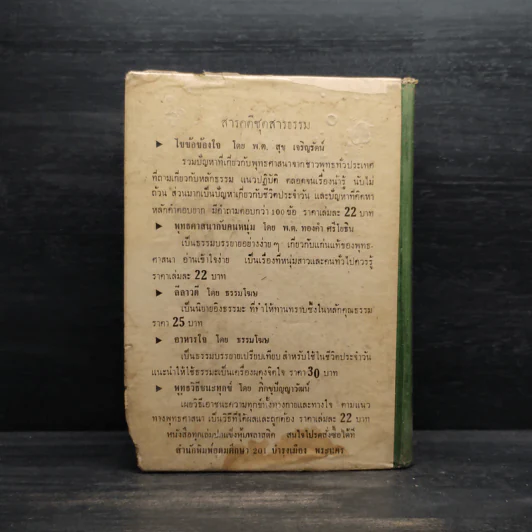 สารคดีชุดสารธรรม
▶ ไขข้อข้องใจ โดย พ.ต. สุข เจริญรัตน์
รวมปัญหาที่เกี่ยวกับพุทธศาสนาจากชาวพุทธทั่วประเทศ
ที่ถามเกี่ยวกับหลักธรรม แนวปฏิบัติ ตลอดจนเรื่องน่ารู้ นับไม่
ถ้วน ส่วนมากเป็นปัญหาเกี่ยวกับชีวิตประจำวัน และปัญหาที่ค้นหา
หลักคำตอบยาก มีคำถามตอบกว่า 100 ข้อ ราคาเล่มละ 22 บาท
▶ พุทธศาสนากับคนหนุ่ม โดย พ.ต. ทองคำ ศรีโยธิน
เป็นธรรมบรรยายอย่างง่าย ๆ เกี่ยวกับแก่นแท้ของพุทธ-
ศาสนา อ่านเข้าใจง่าย เป็นเรื่องที่หนุ่มสาวและคนทั่วไปควรรู้
ราคาเล่มละ 22 บาท
▶ ลีลาวดี โดย ธรรมโฆษ
เป็นนิยายอิงธรรมะ ที่ทำให้ท่านทราบซึ้งในหลักคุณธรรม
ราคา 25 บาท
▶ อาหารใจ โดย ธรรมโฆษ
เป็นธรรมบรรยายเปรียบเทียบ สำหรับใช้ในชีวิตประจำวัน
แนะนำให้ใช้ธรรมะเป็นเครื่องผดุงจิตใจ ราคา 30 บาท
▶ พุทธวิธีชนะทุกข์ โดย ภิกขุปัญญาวัฒน์
เผยวิธีเอาชนะความทุกข์ทั้งทางกายและทางใจ ตามแนว
ทางพุทธศาสนา เป็นวิธีที่ได้ผลและถูกต้อง ราคาเล่มละ 22 บาท
หนังสือทุกเล่มปกแข็งหุ้มพลาสติค สนใจโปรดสั่งซื้อได้ที่
สำนักพิมพ์อุดมศึกษา 201 บำรุงเมือง พระนคร